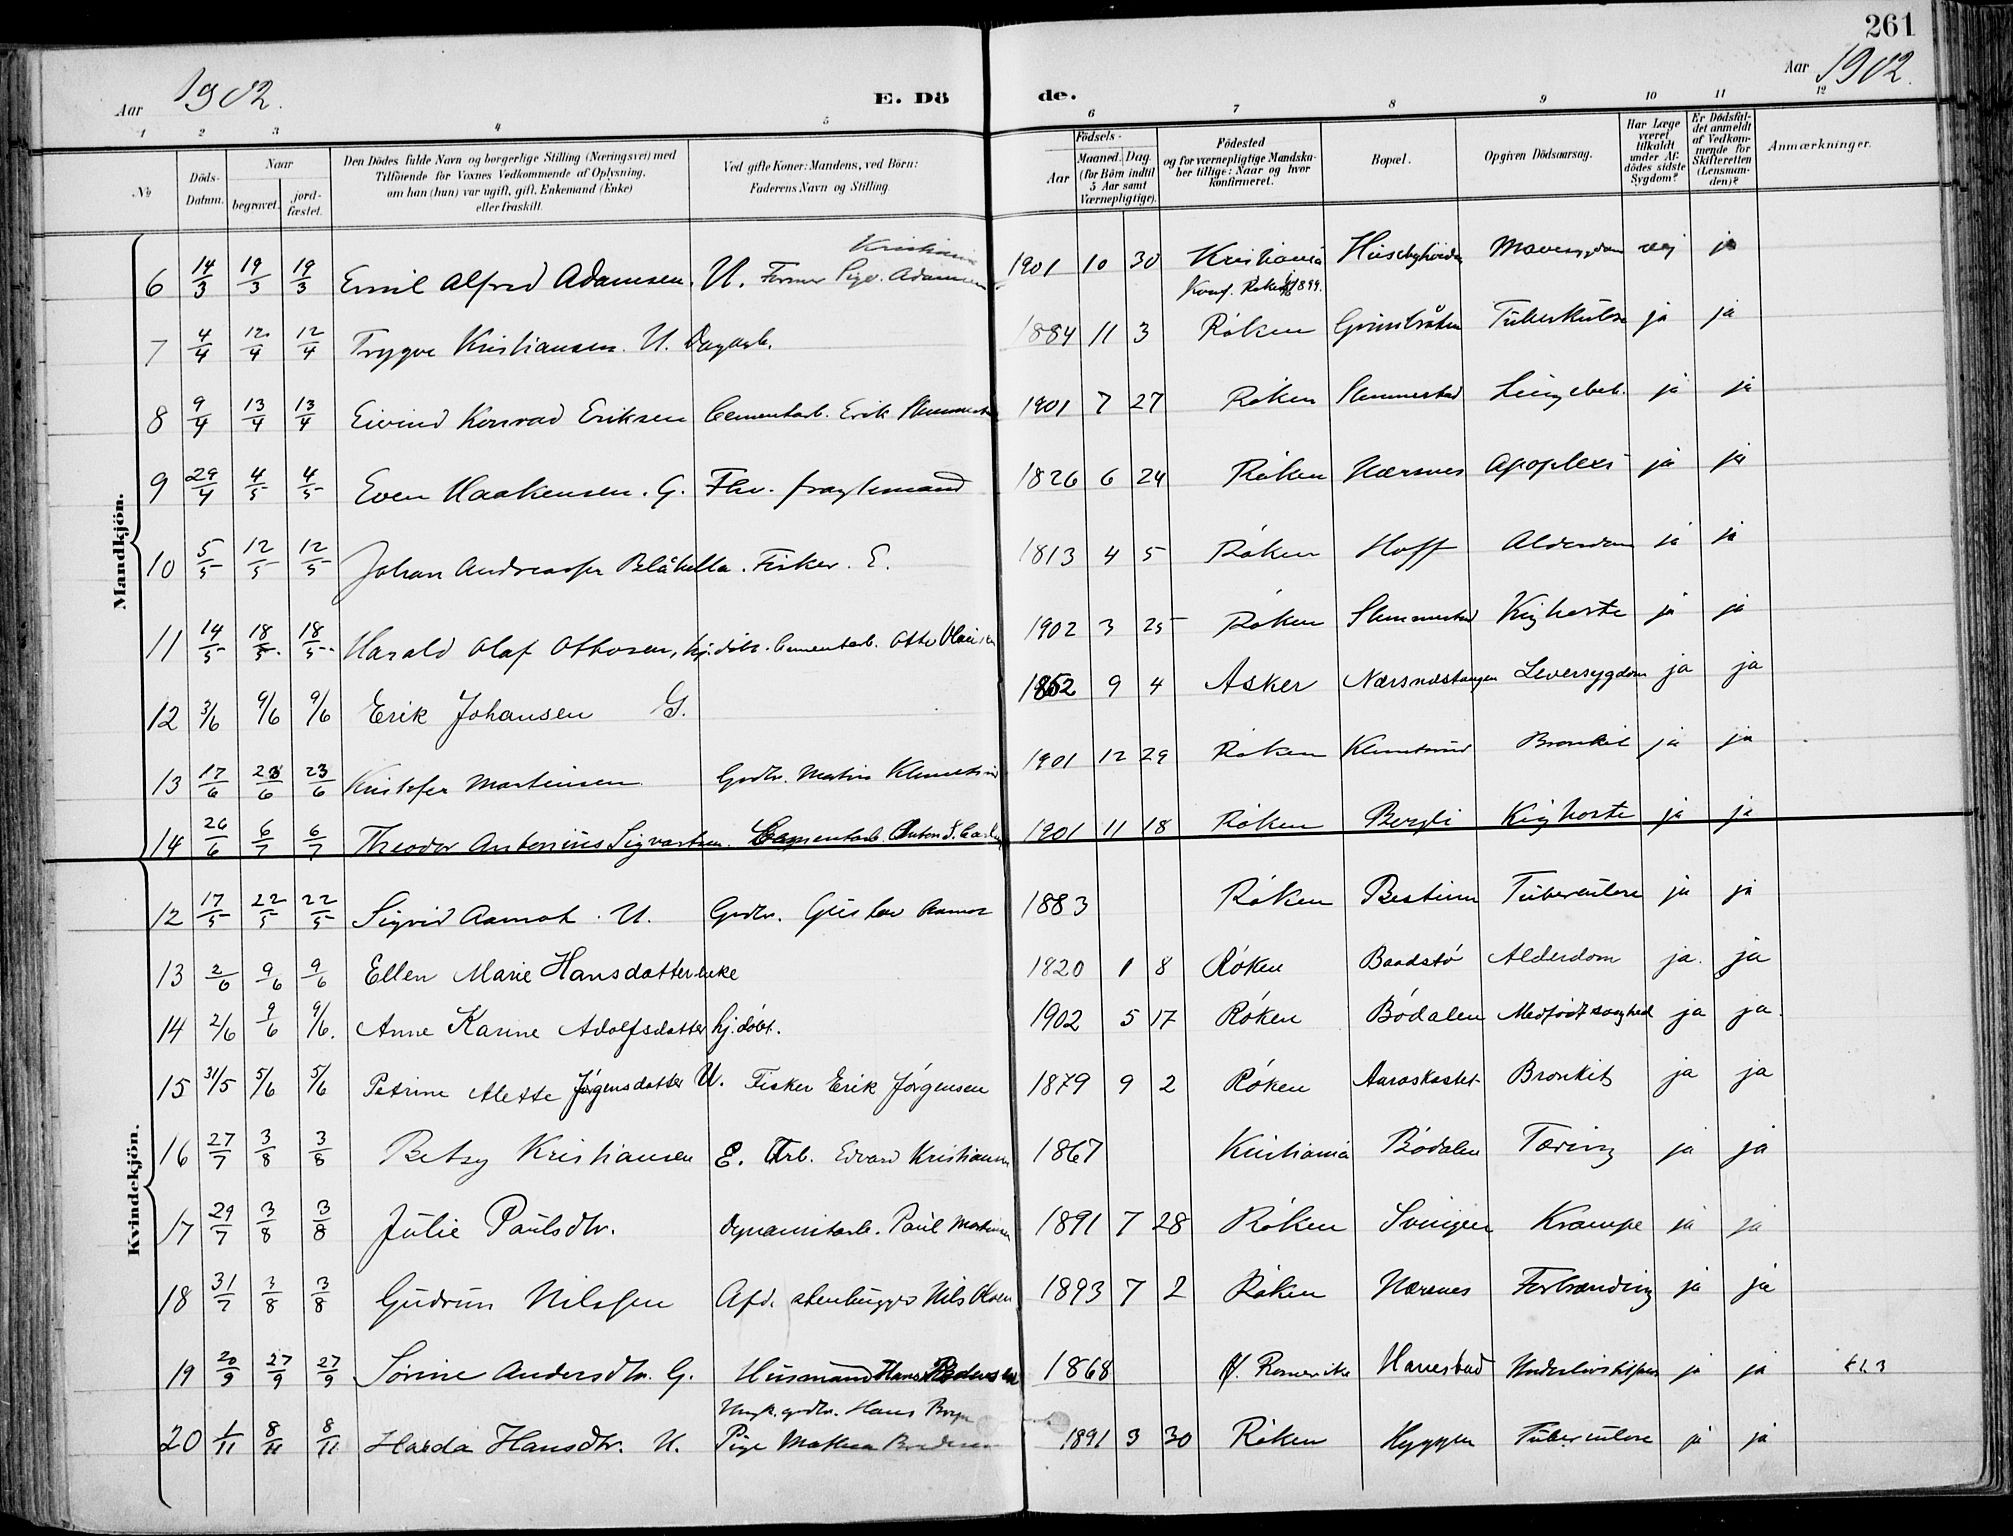 261
Aar 1902.
E. Dö
de.
Aar 1902.
1 2 3 4 5 6 7 8 9 10 11 12
№
Döds-Datum.
Naar
begravet.
jord-fæstet.
Den Dödes fulde Navn og borgerlige Stilling (Næringsvei) med
Tilföiende for Voxnes Vedkommende af Oplysning,
om han (hun) var ugift, gift, Enkemand (Enke)
eller fraskilt.
Ved gifte Koner: Mandens, ved Börn:
Faderens Navn og Stilling.
Födsels-
Aar
Maaned. Dag.
(for Börn indtil
5 Aar samt
Værnepligtige).
Födested
og for værnepligtige Mandska-
ber tillige: Naar og hvor
konfirmeret.
Bopæl.
Opgiven Dödsaarsag.
Har Læge
været
tilkaldt
under Af-
dödes sidste
Sygdom?
Er Dödsfal-
det anmeldt
af Vedkom-
mende for
Skifteretten
(Lensman-
den)?
Anmærkninger.
Mandkjön.
Kristiania
6 14/3 19/3 19/3 Emil Alfred Adamsen. U. Adamsen 1901 10 30 Kristiania Mavesygdom nej ja
Konf. Røken 1899.
7 4/4 12/4 12/4 Trygve Kristiansen. U. Dagarb. 1884 11 3 Røken Grinibråten Tuberkulose ja ja
8 9/4 13/4 13/4 Eivind Konrad Eriksen Cementarb. Erik Slemmestad 1901 7 27 Røken Slemmestad Lungebet. ja ja
9 29/4 4/5 4/5 Even Haakensen. G. Fhv. fragtemand 1826 6 24 Røken Nærsnes Apoplexi ja ja
10 5/5 12/5 12/5 Johan Andreassen Blåkolla. Fisker. E. 1813 4 5 Røken Hoff Alderdom ja ja
11 14/5 18/5 18/5 Harald Olaf Othosen, hj. døbt. Cementarb. Otto Olaisen 1902 3 25 Røken Slemmestad Kighoste ja ja
12 3/6 9/6 9/6 Erik Johansen G. 1852 9 4 Asker Nærsnæstangen Leversygdom ja ja
13 17/6 23/6 23/6 Kristofer Martinsen Grdbr. Martin Klemetsrud 1901 12 29 Røken Klemetsrud Bronkit ja ja
14 26/6 6/7 6/7 Theodor Antonius Sigvartsen. Cementarb. Anton S. 1901 11 18 Røken Bergli Kighoste ja ja
Kvindekjön.
12 17/5 22/5 22/5 Sigrid Aamot. U. Grdbr. Gustav Aamot 1883 Røken Tuberculose ja ja
13 2/6 9/6 9/6 Ellen Marie Hansdatter enke 1820 1 8 Røken Baadstø Alderdom ja. ja
14 2/6 9/6 9/6. Anne Karine Adolfsdatter hj. døbt. 1902 5 17 Røken Bødalen Medfødt svaghed ja ja.
15 31/5 5/6 5/6 Petrine Alette Jørgensdatter U. Fisker Erik Jørgensen 1879 9 2 Røken Aaroskastet Bronkit ja ja
16 27/7 3/8 3/8 Betsy Kristiansen E. Arb. Edvard Kristiansen 1867 Kristiania Bødalen Tæring ja ja
17 29/7 3/8 3/8 Julie Paulsdtr. Dynamitarb. Paul Martinsen 1891 7 28 Røken Svingen Krampe ja ja
18 31/7 3/8 3/8 Gudrun Nilssen Afd. stenhugger Nils Olsen 1893 7 2 Røken Nærsnes Forbrænding ja ja
19 20/9 27/9 27/9 Sørine Andersdtr. G. Husmand Hans Pedersen 1868 Ø. Romerike Hanestad ja ja
Ungk. grdbr. Hans
20 1/11 8/11 8/11 Harda Hansdtr. U. Pige Mathea 1891 3 30 Røken Hyggen Tuberculose ja ja